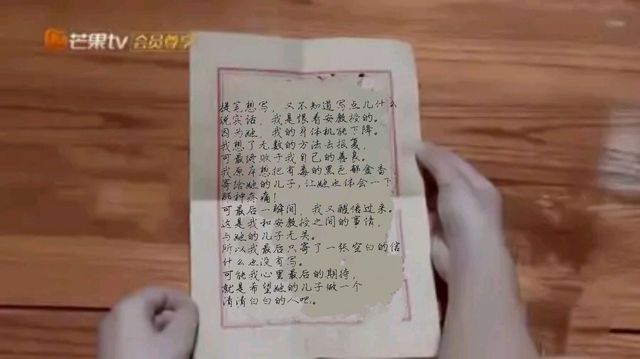 芒果tv 会员尊享
提笔想写，又不知道写点儿什么
说实话，我是恨着安教授的。
因为她，我的身体机能下降。
我想了无数的方法去报复，
可最终败于我自己的善良。
我原本想把有毒的黑色郁金香，
寄给她的儿子，让她也体会一下
那种疼痛！
可最后一瞬间，我又醒悟过来。
这是我和安教授之间的事情，
与她的儿子无关。
所以我最后只寄了一张空白的信
什么也没有写。
可能我心里最后的期待，
就是希望她的儿子做一个
清清白白的人吧。